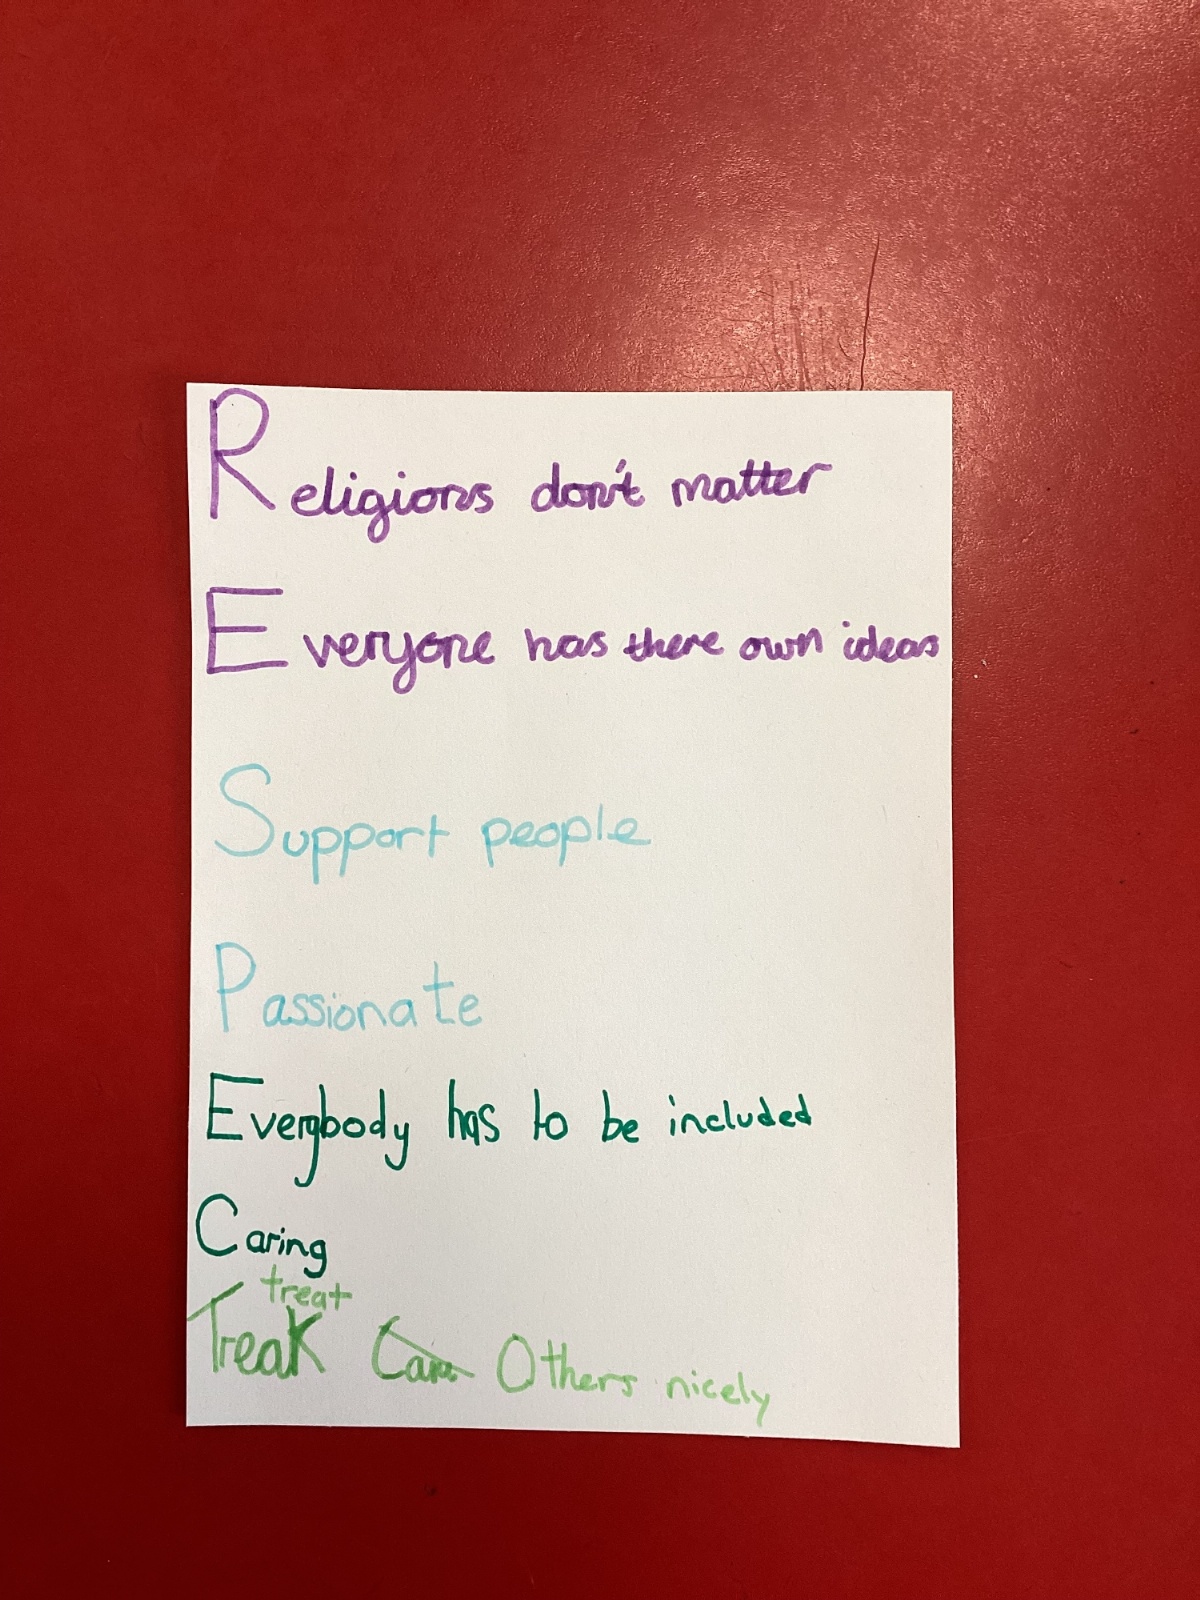 Religions don't matter
Everyone has there own ideas
Support people
Passionate
Everybody has to be included
Caring
treat
Treak Care Others nicely